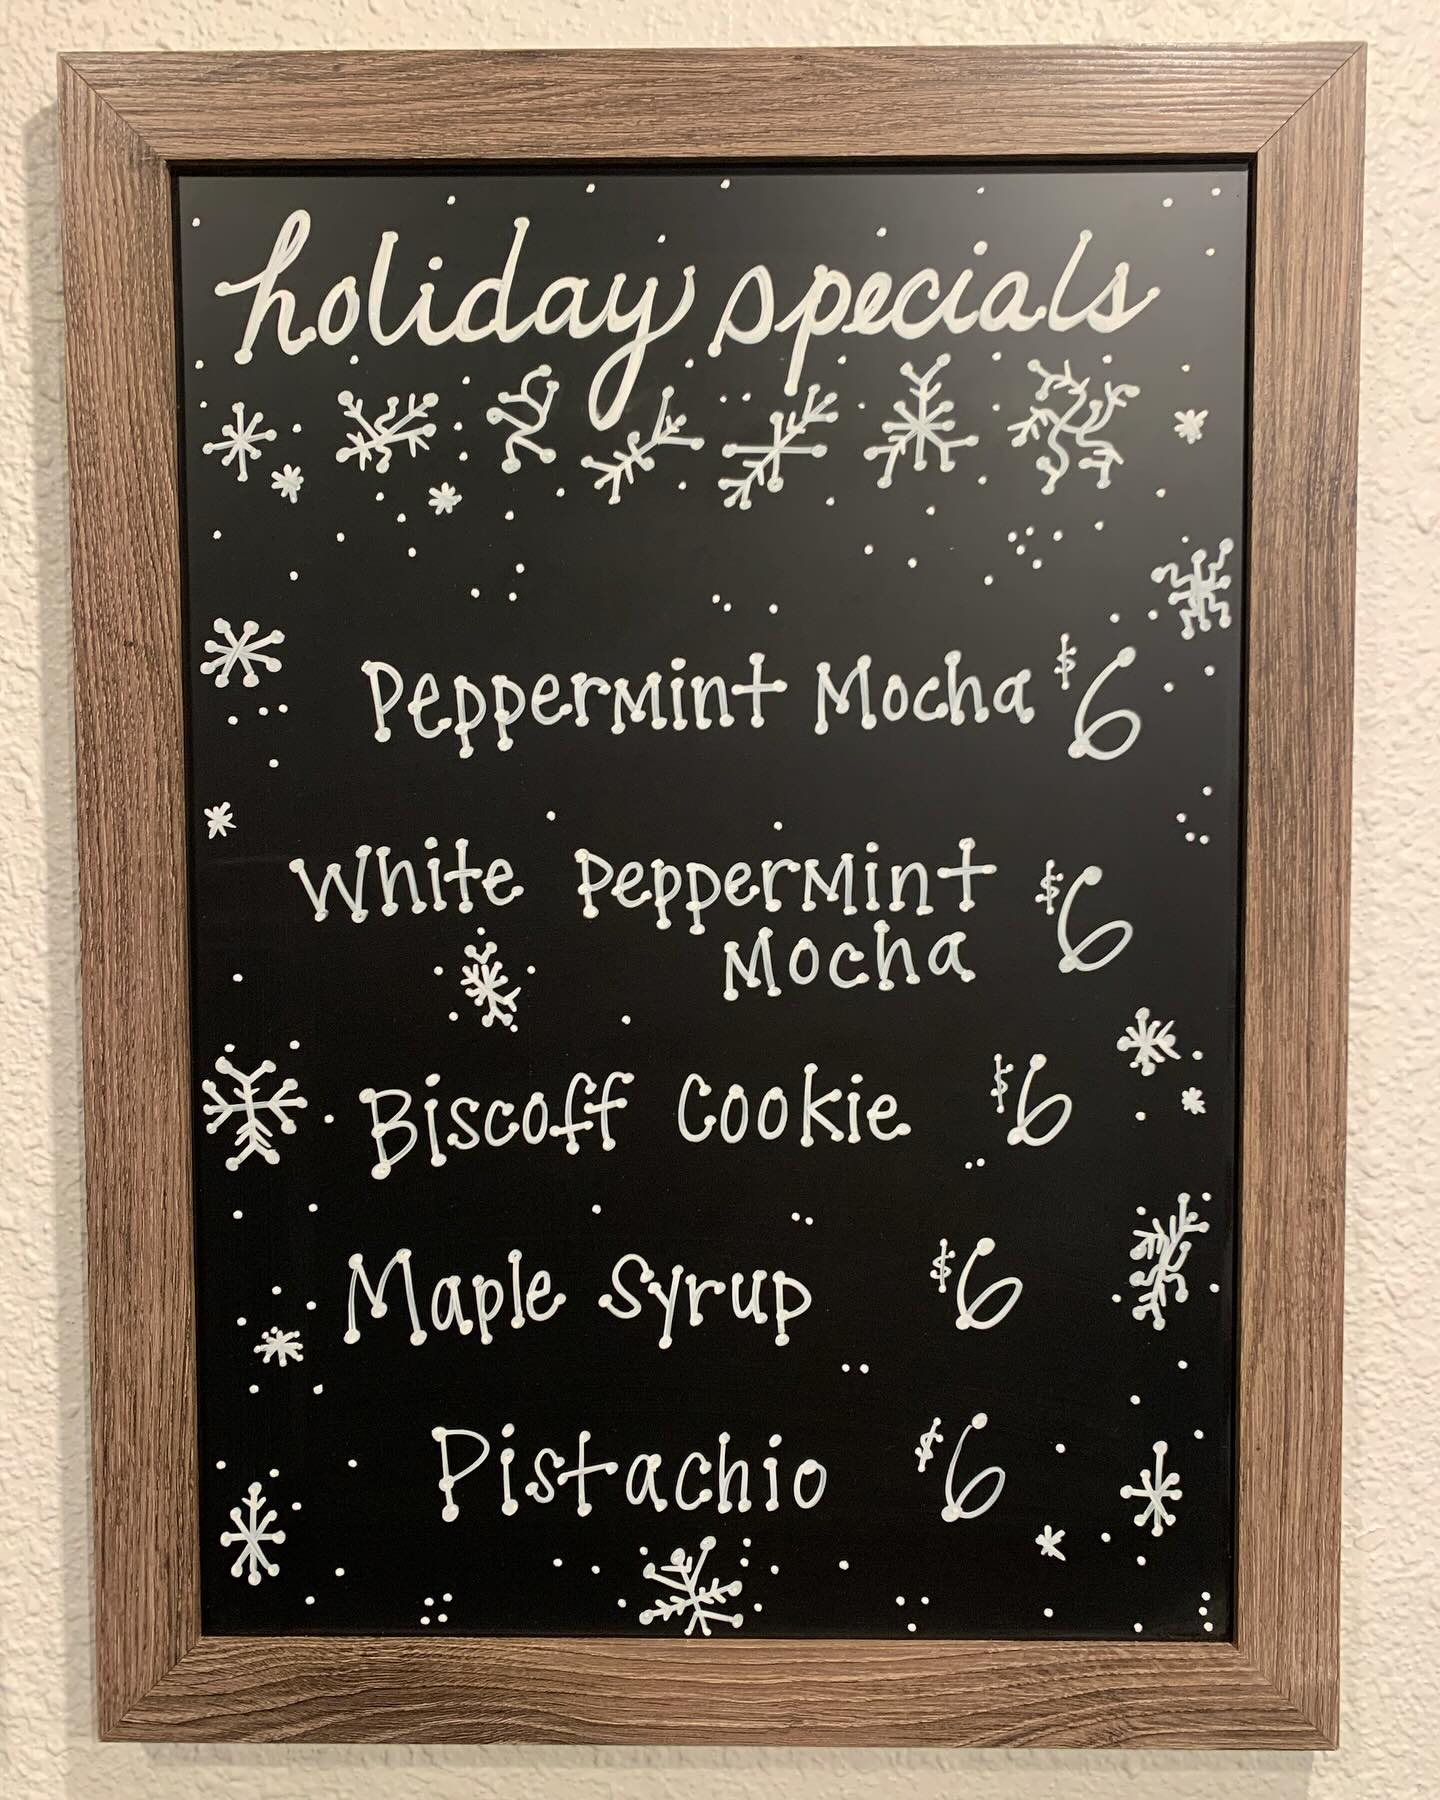 holiday specials
Peppermint Mocha $6
White Peppermint $6
Mocha
Biscoff Cookie $6
Maple Syrup $6
Pistachio $6